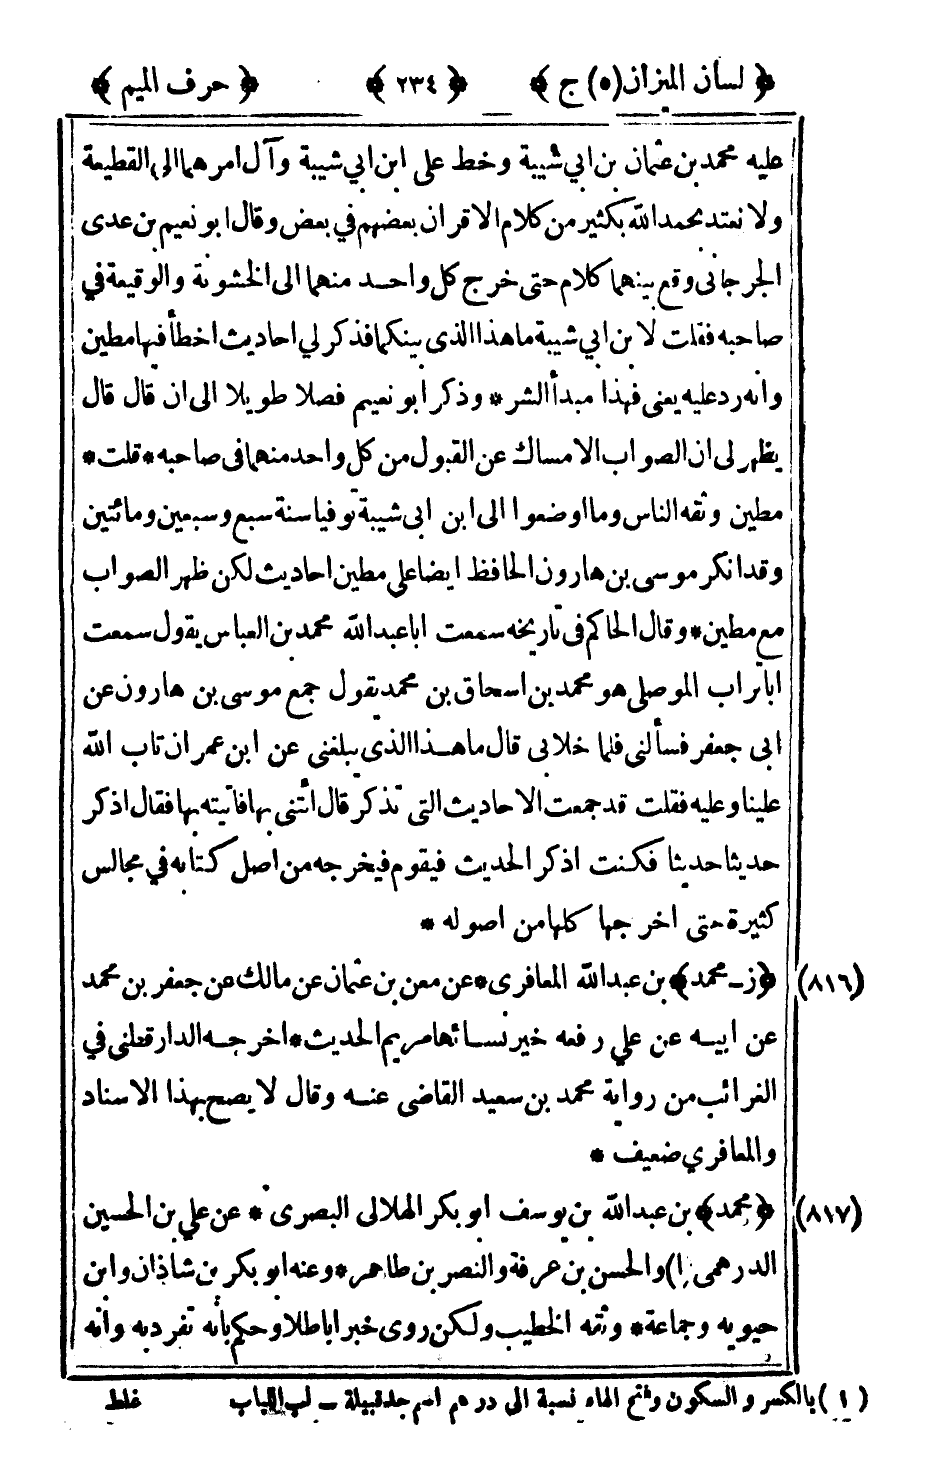 ﴿ لسان الميزان (٥) ج ﴾ ﴿ ٢٣٤ ﴾ ﴿ حرف الميم ﴾
عليه محمد بن عثمان بن ابي شيبة وخط على ابن ابي شيبة وآل امرهما الى القطيعة
ولا نعتد بحمد الله بكثير من كلام الاقران بعضهم في بعض وقال ابو نعيم بن عدى
الجرجانى وقع بينهما كلام حتى خرج كل واحد منهما الى الخشونة والوقيعة في
صاحبه فقلت لابن ابي شيبة ما هذا الذى بينكما فذكر لي احاديث اخطأ فيها مطين
وانه رد عليه يعنى فهذا مبدأ الشر * وذكر ابو نعيم فصلا طويلا الى ان قال قال
يظهر لى ان الصواب الامساك عن القبول من كل واحد منهما فى صاحبه * قلت *
مطين وثقه الناس وما اوضعوا الى ابن ابى شيبة توفيا سنة سبع وسبعين ومائتين
وقد انكر موسى بن هارون الحافظ ايضا على مطين احاديث لكن ظهر الصواب
مع مطين * وقال الحاكم فى تاريخه سمعت ابا عبد الله محمد بن العباس يقول سمعت
ابا تراب الموصلى هو محمد بن اسحاق بن محمد يقول جمع موسى بن هارون عن
ابى جعفر فسألنى فلما خلا بى قال ما هذا الذى يبلغنى عن ابن عمران تاب الله
علينا وعليه فقلت قد جمعت الاحاديث التى تذكر قال أئتنى بها فاتيته بها فقال اذكر
حديثا حديثا فكنت اذكر الحديث فيقوم فيخرجه من اصل كتابه في مجالس
كثيرة حتى اخرجها كلها من اصوله *
(٨١٦) ﴿ز - محمد﴾ بن عبد الله المعافرى * عن معن بن عثمان عن مالك عن جعفر بن محمد
عن ابيه عن علي رفعه خير نسائها مريم الحديث * اخرجه الدارقطنى في
الغرائب من رواية محمد بن سعيد القاضى عنه وقال لا يصح بهذا الاسناد
والمعافري ضعيف *
(٨١٧) ﴿محمد﴾ بن عبد الله بن يوسف ابو بكر الهلالى البصرى * عن علي بن الحسين
الدرهمى (١) والحسن بن عرفة والنصر بن طاهر * وعنه ابو بكر بن شاذان وابن
حيويه وجماعة * وثقه الخطيب ولكن روى خبرا باطلا وحكم بأنه تفرد به وانه
(١) بالكسر والسكون وفتح الهاء نسبة الى درهم اسم جد قبيلة - لب اللباب غلط